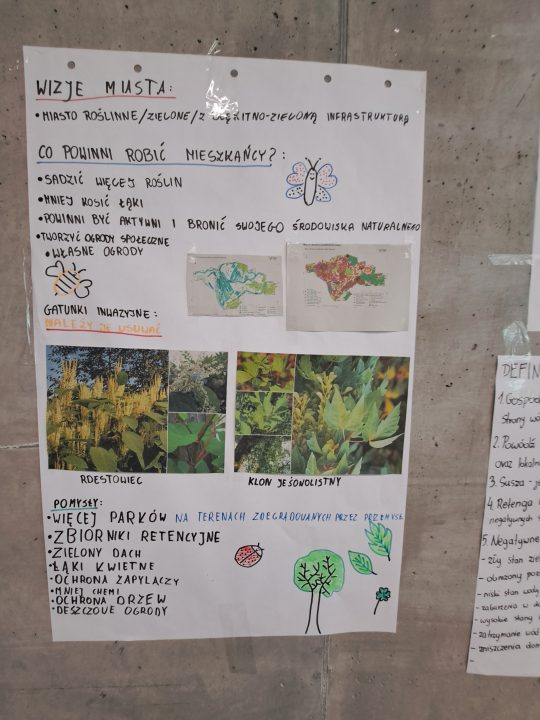 WIZJE MIASTA:
• MIASTO ROŚLINNE/ZIELONE/Z BŁĘKITNO-ZIELONĄ INFRASTRUKTURĄ
CO POWINNI ROBIĆ MIESZKAŃCY?:
• SADZIĆ WIĘCEJ ROŚLIN
• MNIEJ KOSIĆ ŁĄKI
• POWINNI BYĆ AKTYWNI I BRONIĆ SWOJEGO ŚRODOWISKA NATURALNEGO
• TWORZYĆ OGRODY SPOŁECZNE
• WŁASNE OGRODY
GATUNKI INWAZYJNE:
NALEŻY JE USUWAĆ
RDESTOWIEC
KLON JESIONOLISTNY
POMYSŁY:
• WIĘCEJ PARKÓW NA TERENACH ZDEGRADOWANYCH PRZEZ PRZEMYSŁ
• ZBIORNIKI RETENCYJNE
• ZIELONY DACH
• ŁĄKI KWIETNE
• OCHRONA ZAPYLACZY
• MNIEJ CHEMI
• OCHRONA DRZEW
• DESZCZOWE OGRODY
DEFIN
1. Gospod
strony wo
2. Powódź
oraz lokaln
3. Susza - je
4. Retencja
negatywnych
5. Negatywne
- zły stan zie
- obniżony poz
- niski stan wody
- zaburzenia w
- wysokie stany
- zatrzymanie wod
- zniszczenia dom